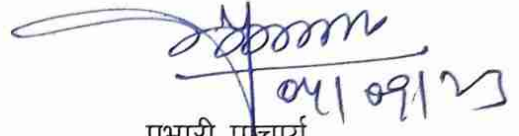 04/09/23
प्रभारी प्राचार्य